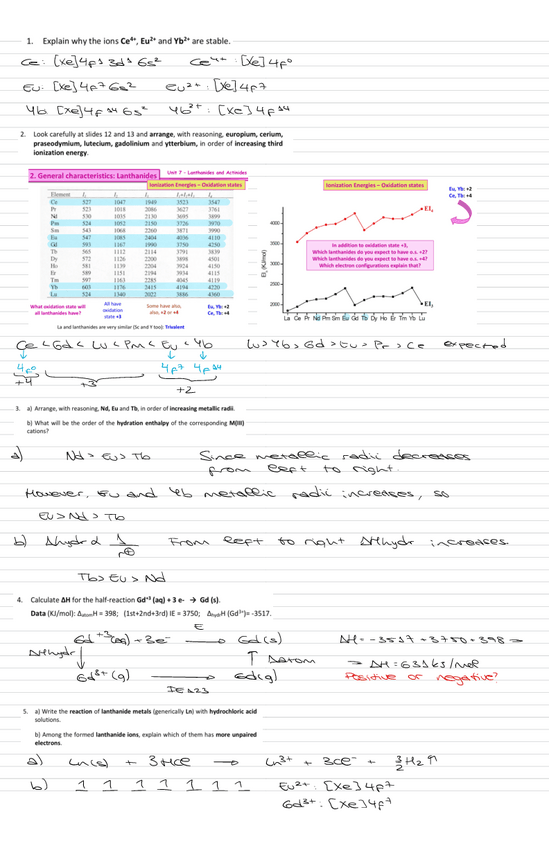 1. Explain why the ions Ce⁴⁺, Eu²⁺ and Yb²⁺ are stable.
Ce: [Xe]4f¹ 5d¹ 6s² Ce⁴⁺: [Xe]4f⁰
Eu: [Xe]4f⁷6s² Eu²⁺: [Xe]4f⁷
Yb [Xe]4f¹⁴6s² Yb²⁺: [Xe]4f¹⁴
2. Look carefully at slides 12 and 13 and arrange, with reasoning, europium, cerium,
praseodymium, lutecium, gadolinium and ytterbium, in order of increasing third
ionization energy.
2. General characteristics: Lanthanides
Unit 7 - Lanthanides and Actinides
Ionization Energies – Oxidation states
Element I₁ I₂ I₃ I₁+I₂+I₃ I₄
Ce 527 1047 1949 3523 3547
Pr 523 1018 2086 3627 3761
Nd 530 1035 2130 3695 3899
Pm 524 1052 2150 3726 3970
Sm 543 1068 2260 3871 3990
Eu 547 1085 2404 4036 4110
Gd 593 1167 1990 3750 4250
Tb 565 1112 2114 3791 3839
Dy 572 1126 2200 3898 4501
Ho 581 1139 2204 3924 4150
Er 589 1151 2194 3934 4115
Tm 597 1163 2285 4045 4119
Yb 603 1176 2415 4194 4220
Lu 524 1340 2022 3886 4360
What oxidation state will
all lanthanides have?
All have
oxidation
state +3
Some have also,
also, +2 or +4
Eu, Yb: +2
Ce, Tb: +4
La and lanthanides are very similar (Sc and Y too): Trivalent
Ionization Energies – Oxidation states
Eu, Yb: +2
Ce, Tb: +4
EI₄
In addition to oxidation state +3,
Which lanthanides do you expect to have o.s. +2?
Which lanthanides do you expect to have o.s. +4?
Which electron configurations explain that?
EI₃
EI, (KJ/mol)
4000
3500
3000
2500
2000
La Ce Pr Nd Pm Sm Eu Gd Tb Dy Ho Er Tm Yb Lu
Ce < Gd < Lu < Pm < Eu < Yb Lu > Yb > Gd > Eu > Pr > Ce expected
4f⁰ 4f⁷ 4f¹⁴
+4 +3 +2
3. a) Arrange, with reasoning, Nd, Eu and Tb, in order of increasing metallic radii.
b) What will be the order of the hydration enthalpy of the corresponding M(III)
cations?
a) Nd > Eu > Tb Since metallic radii decreases
from left to right.
However, Eu and Yb metallic radii increases, so
Eu > Nd > Tb
b) Δhydr α 1/r⊕ From left to right ΔHhydr increases.
Tb > Eu > Nd
4. Calculate ΔH for the half-reaction Gd⁺³ (aq) + 3 e- → Gd (s).
Data (KJ/mol): ΔatomH = 398; (1st+2nd+3rd) IE = 3750; ΔhydrH (Gd³⁺)= -3517.
E
Gd⁺³(aq) + 3e⁻ → Gd(s) ΔH = -3517 + 3750 + 398 =
ΔHhydr ↓ ↑ Δatom = ΔH = 631 kJ/mol
Gd³⁺(g) → Gd(g) Positive or negative?
IE 123
5. a) Write the reaction of lanthanide metals (generically Ln) with hydrochloric acid
solutions.
b) Among the formed lanthanide ions, explain which of them has more unpaired
electrons.
a) Ln(s) + 3HCl → Ln³⁺ + 3Cl⁻ + 3/2 H₂↑
b) 1 1 1 1 1 1 1 Eu²⁺: [Xe]4f⁷
Gd³⁺: [Xe]4f⁷